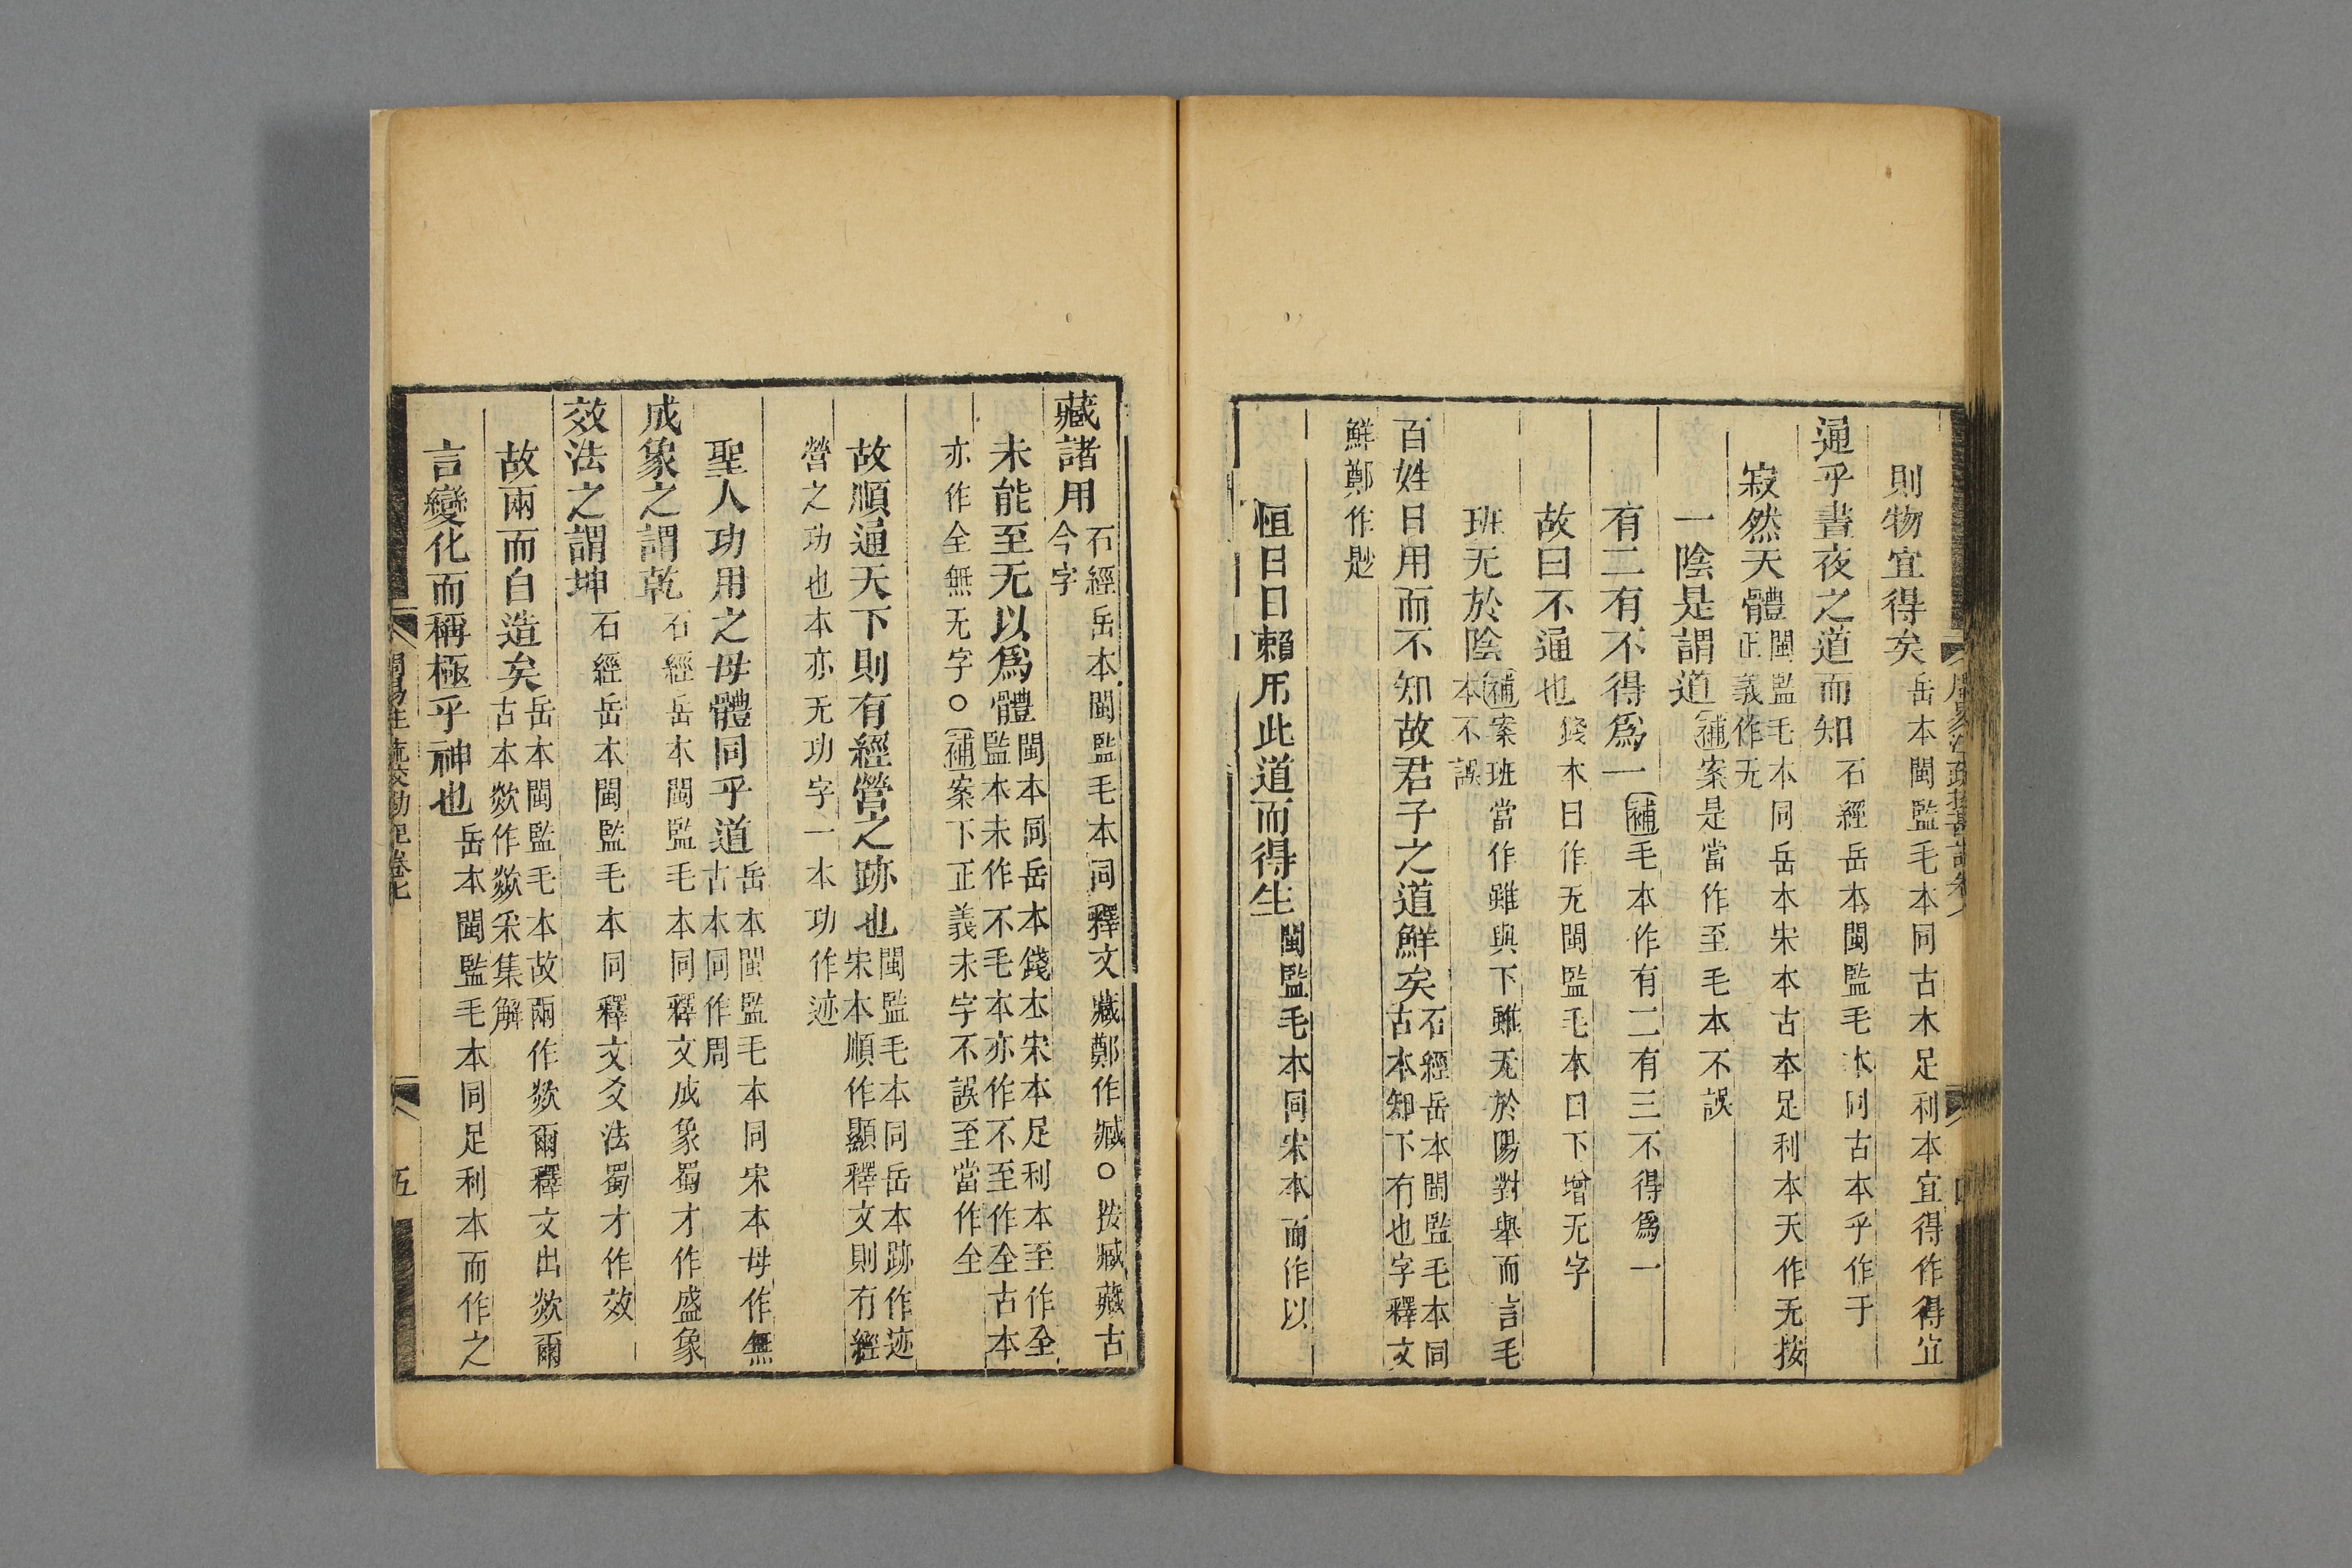 則物宜得矣岳本閩監毛本同古本足利本宜得作得宜
通乎晝夜之道而知石經岳本閩監毛本同古本乎作于
寂然天體閩監毛本同岳本宋本古本足利本天作无按
正義作无
一陰是謂道補案是當作至毛本不誤
有二有不得爲一補毛本作有二有三不得爲一
故曰不通也錢本曰作无閩監毛本曰下增无字
班无於陰補案班當作雖與下雖无於陽對舉而言毛
本不誤
百姓日用而不知故君子之道鮮矣石經岳本閩監毛本同
古本知下有也字釋文
鮮鄭作尟
恒日日賴用此道而得生閩監毛本同宋本而作以
藏諸用石經岳本閩監毛本同釋文藏鄭作臧○按臧藏古
今字
未能至无以爲體閩本同岳本錢本宋本足利本至作全
監本未作不毛本亦作不至作全古本
亦作全無无字○補案下正義未字不誤至當作全
故順通天下則有經營之跡也閩監毛本同岳本跡作迹
宋本順作顯釋文則有經
營之功也本亦无功字一本功作迹
聖人功用之母體同乎道岳本閩監毛本同宋本母作無
古本同作周
成象之謂乾石經岳本閩監毛本同釋文成象蜀才作盛象
效法之謂坤石經岳本閩監毛本同釋文爻法蜀才作效
故兩而自造矣岳本閩監毛本故兩作欻爾釋文出欻爾
古本欻作歘采集解
言變化而稱極乎神也岳本閩監毛本同足利本而作之
周易注疏校勘記卷七
五